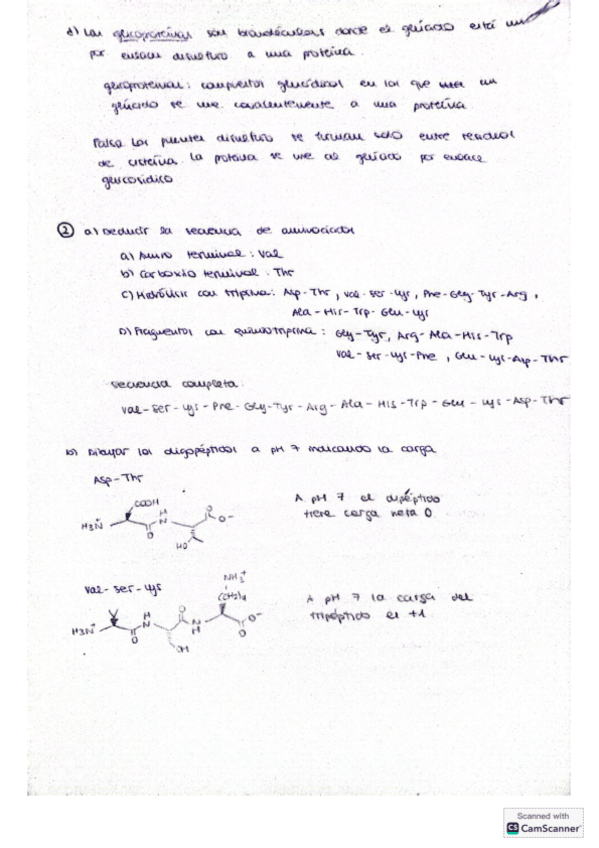 d) Las glicoproteínas son biomoléculas donde el glúcido está unido
por enlaces disulfuro a una proteína.
glicoproteínas: compuestos glucídicos en los que un
glúcido se une covalentemente a una proteína
Falso los puentes disulfuro se forman solo entre residuos
de cisteína. La proteína se une al glúcido por enlace
glucosídico
② a) Deducir la secuencia de aminoácidos
a) Amino terminal: Val
b) Carboxilo terminal: Thr
c) Hidrólisis con tripsina: Asp-Thr, Val-Ser-Lys, Phe-Gly-Tyr-Arg,
Ala-His-Trp-Glu-Lys
D) Fragmentos con quimotripsina: Gly-Tyr, Arg-Ala-His-Trp
Val-Ser-Lys-Phe, Glu-Lys-Asp-Thr
secuencia completa:
Val-Ser-Lys-Phe-Gly-Tyr-Arg-Ala-His-Trp-Glu-Lys-Asp-Thr
b) Dibujar los oligopéptidos a pH 7 indicando la carga
Asp-Thr
COOH
H3N+
O
H
N
O
O-
HO
A pH 7 el dipéptido
tiene carga neta 0.
Val-Ser-Lys
NH3+
(CH2)4
H3N+
O
H
N
OH
O
N
H
O
O-
A pH 7 la carga del
tripéptido es +1
Scanned with
CS CamScanner